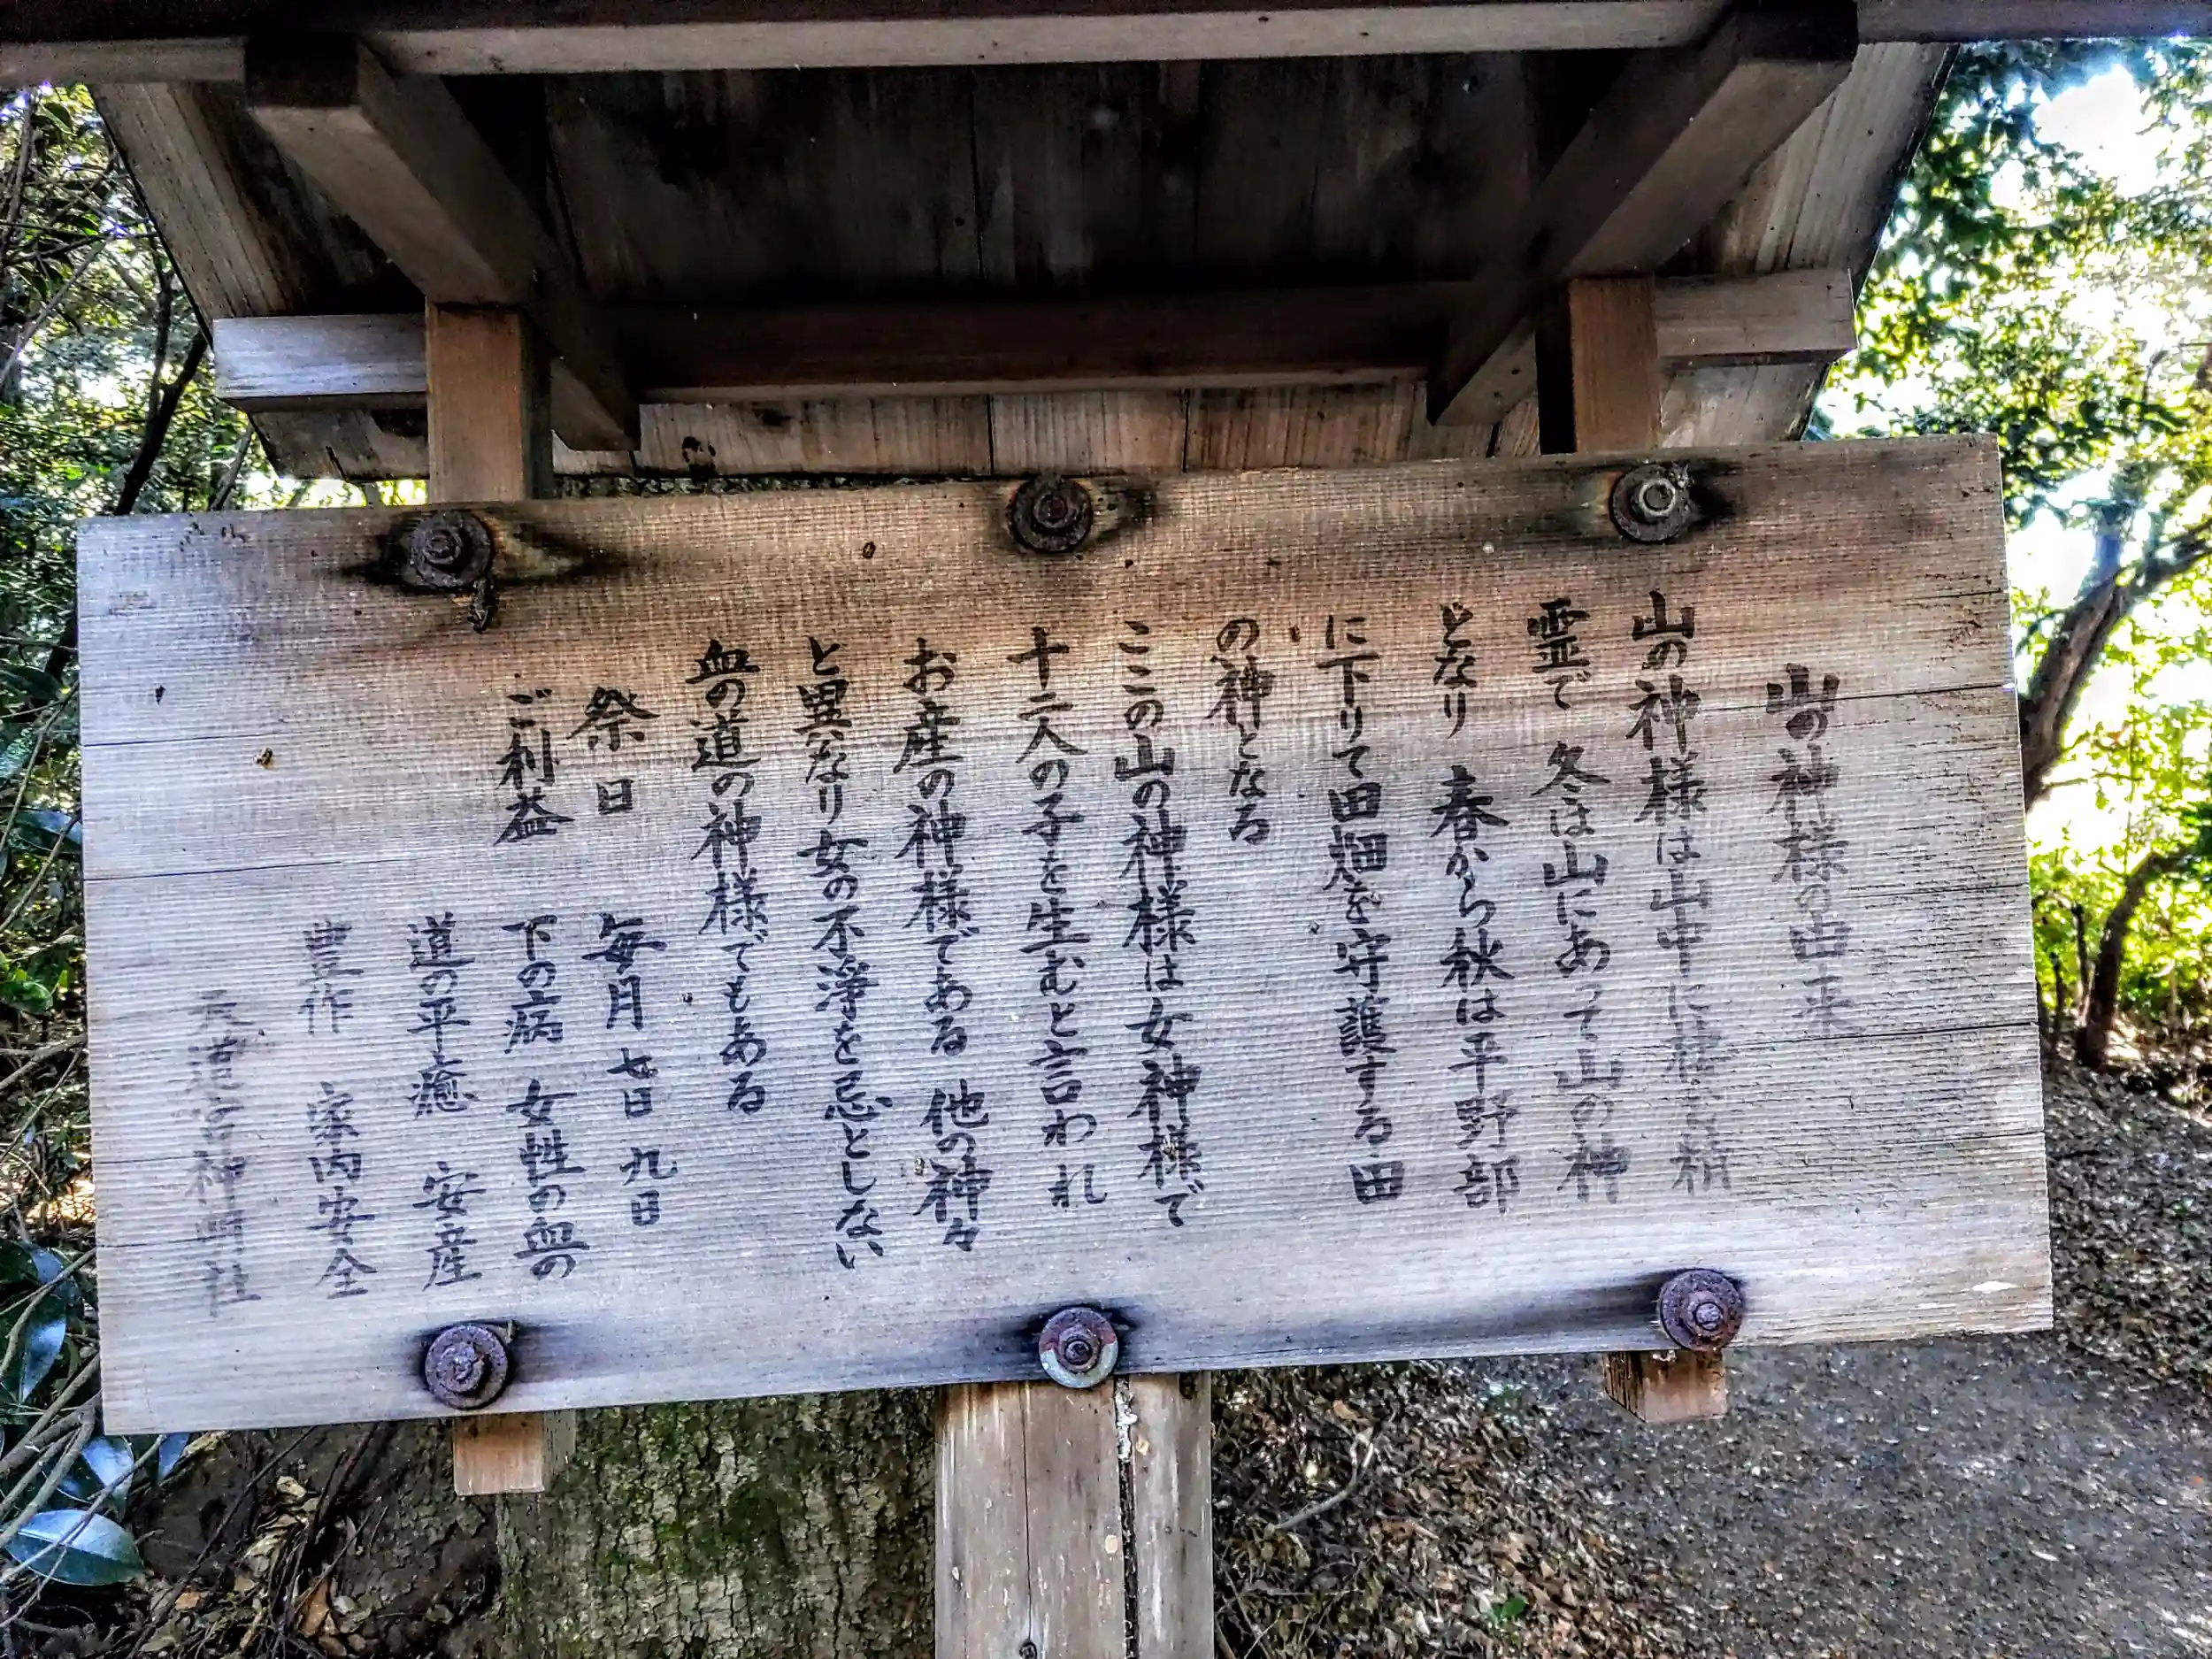 山の神様の由来
山の神様は山中に棲む精
霊で 冬は山にあって山の神
となり 春から秋は平野部
に下りて田畑を守護する田
の神となる
ここの山の神様は女神様で
十二人の子を生むと言われ
お産の神様である 他の神々
と異なり女の不浄を忌としない
血の道の神様でもある
祭日 毎月 七日 九日
ご利益 下の病 女性の血の
道の平癒 安産
豊作 家内安全
神明社